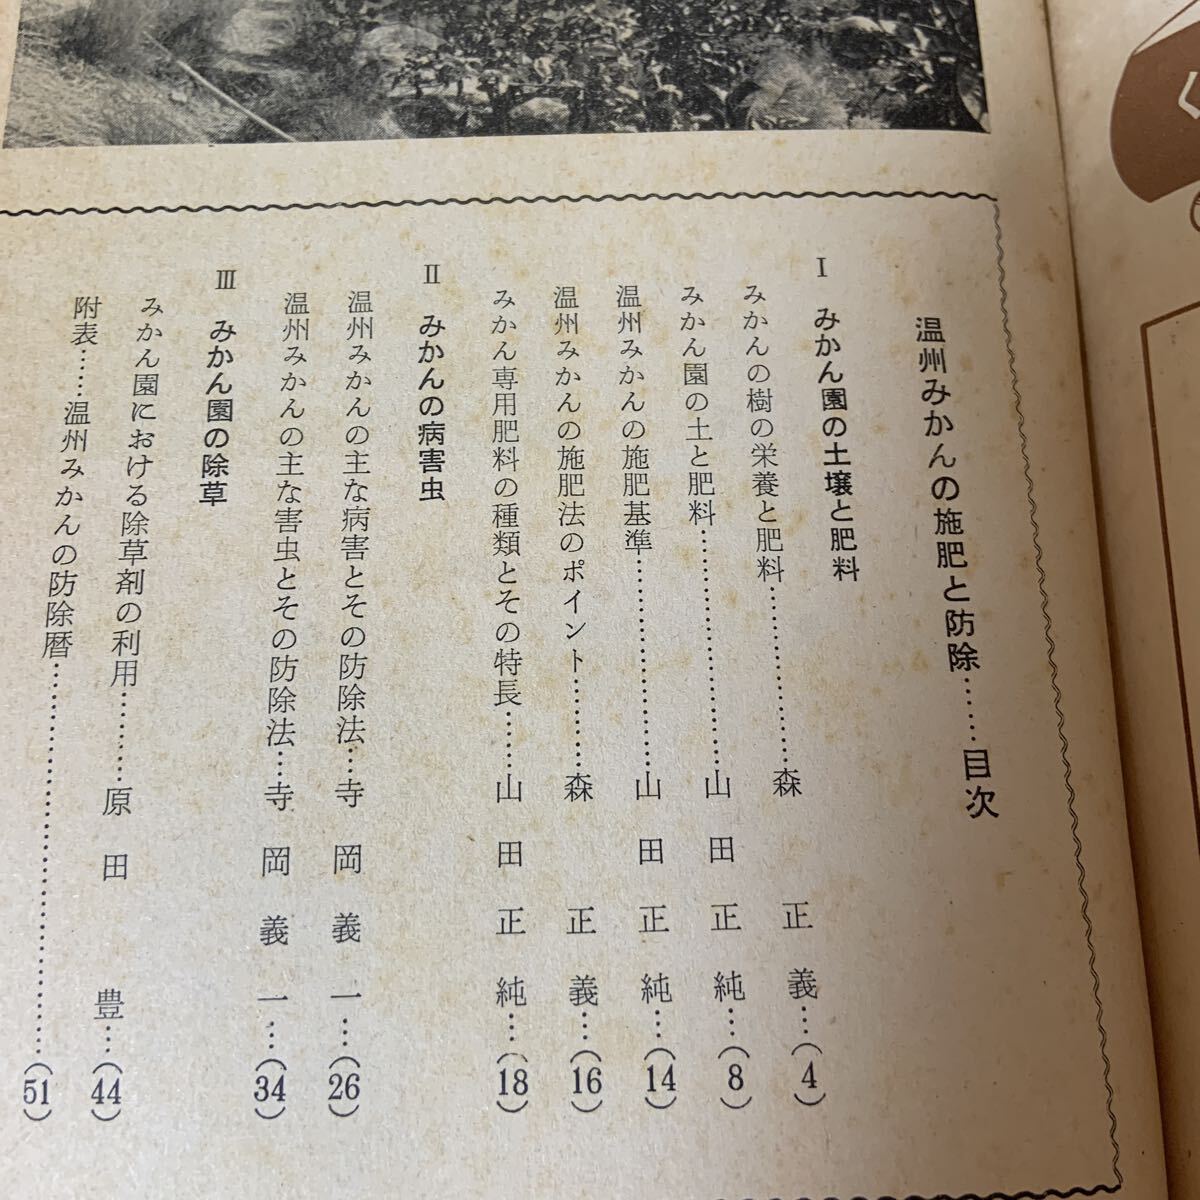 温州みかんの施肥と防除……目次
Ⅰ　みかん園の土壌と肥料
みかんの樹の栄養と肥料…………………森　正義…(4)
みかん園の土と肥料………………………山田正純…(8)
温州みかんの施肥基準……………………山田正純…(14)
温州みかんの施肥法のポイント…………森　正義…(16)
みかん専用肥料の種類とその特長………山田正純…(18)
Ⅱ　みかんの病害虫
温州みかんの主な病害とその防除法…寺岡義一…(26)
温州みかんの主な害虫とその防除法…寺岡義一…(34)
Ⅲ　みかん園の除草
みかん園における除草剤の利用………原田　豊…(44)
附表……温州みかんの防除暦……………………………(51)
く